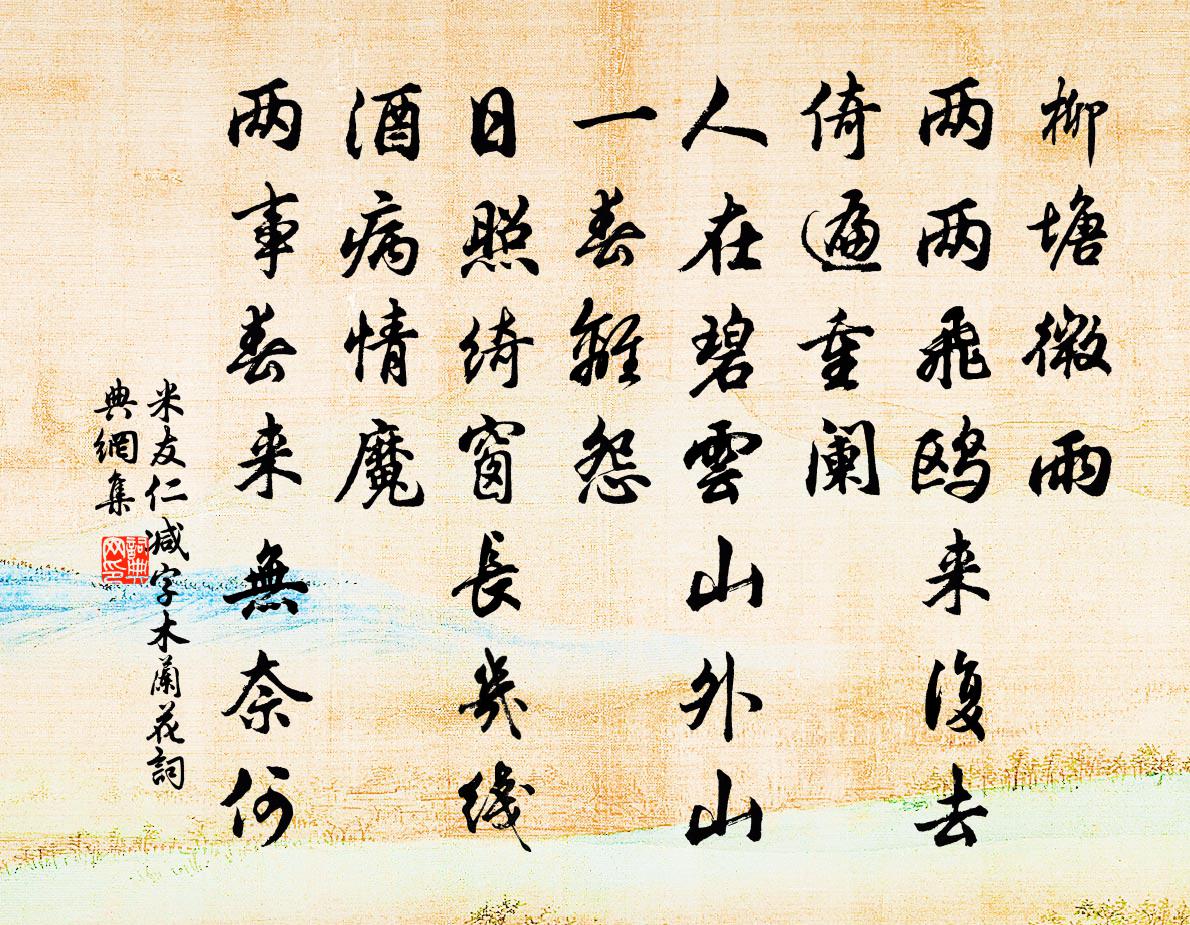 柳塘微雨
两两飛鸥来復去
倚遍重阑
人在碧雲山外山
一春離怨
日照绮窗長幾线
酒病情魔
两事春来無奈何
米友仁减字木蘭花詞
典網集
詞典网印